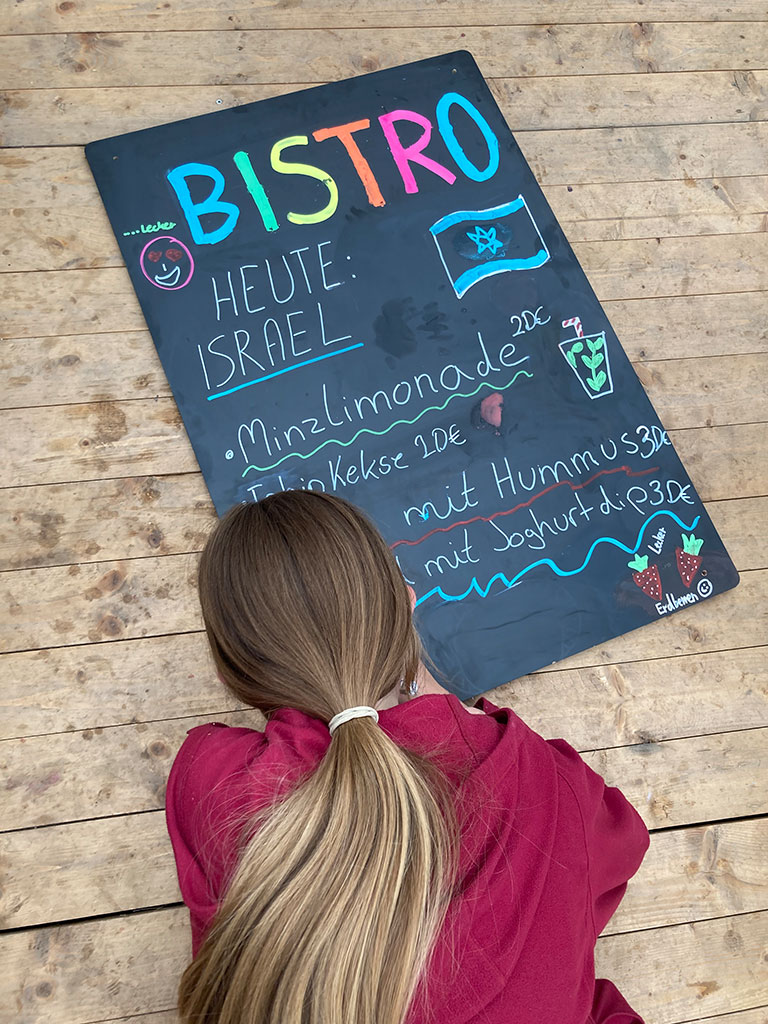 BISTRO
....Lecker
HEUTE:
ISRAEL
• Minzlimonade 2D€
Kekse 1D€
mit Hummus 3D€
mit Joghurtdip 3D€
Lecker
Erdbeeren